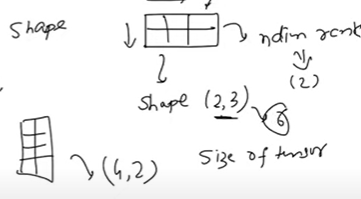 Shape
ndim rank
(2)
Shape (2,3)
6
Size of tensor
(4,2)